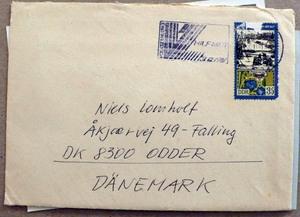 HILF MIT
DDR 35
Niels Lomholt
Åkjærvej 49-Falling
DK 8300 ODDER
DÄNEMARK